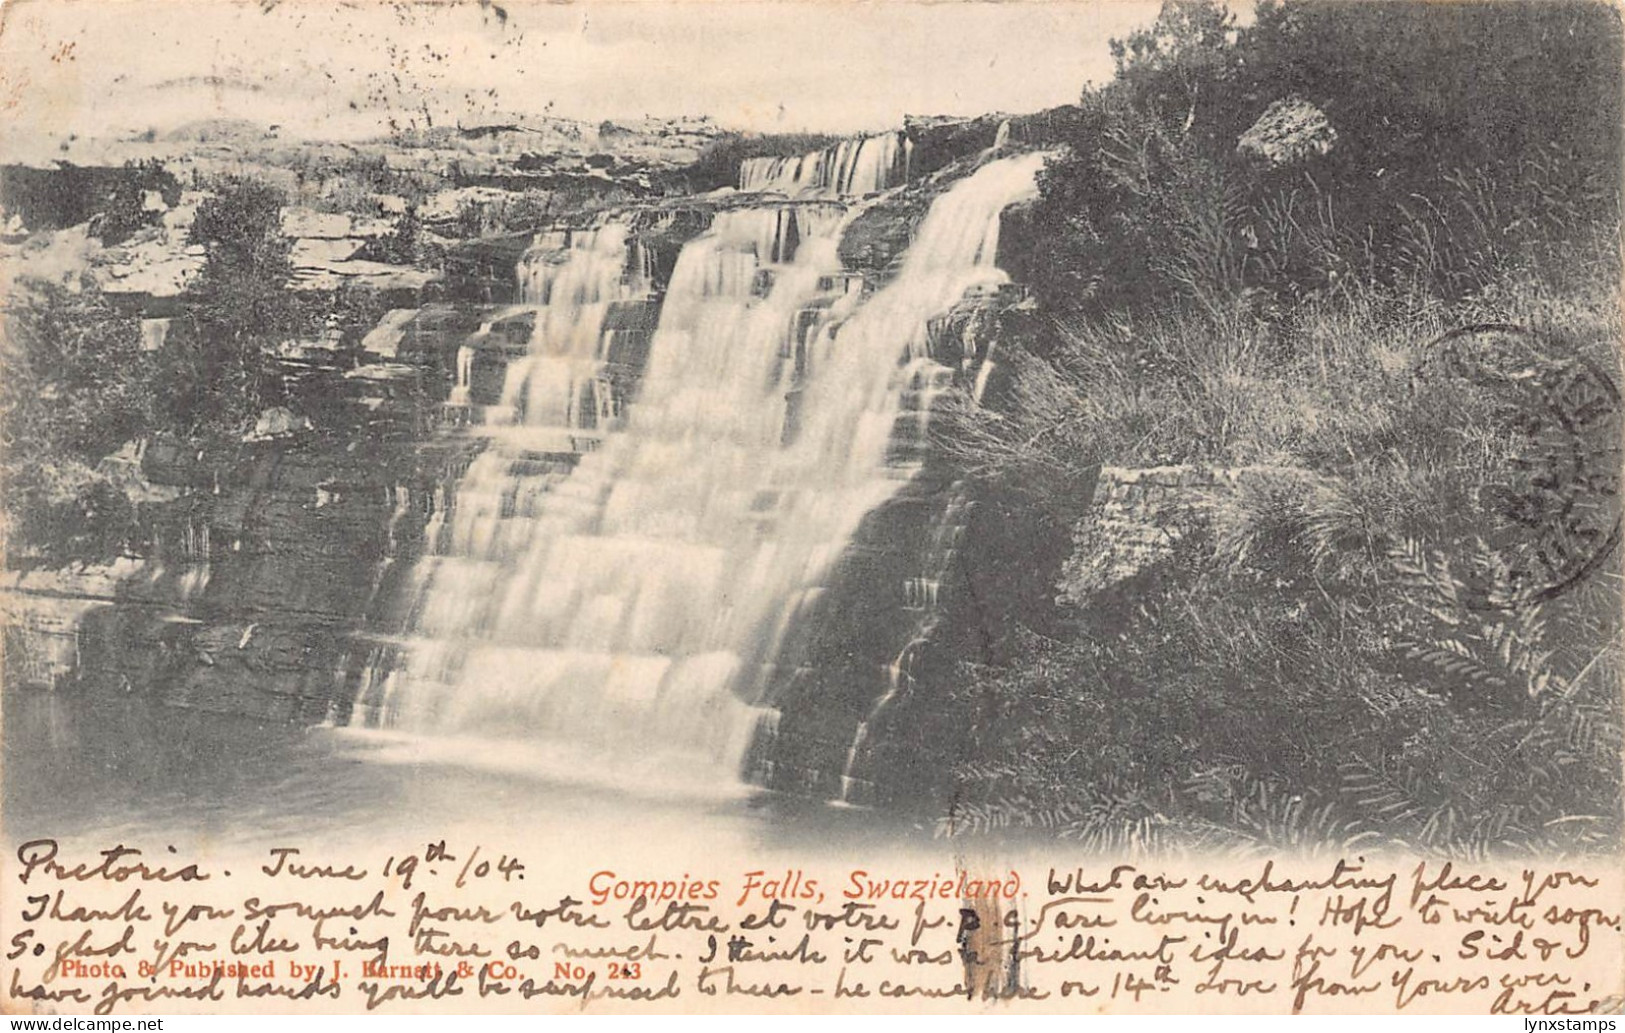 Pretoria. June 19th /04.
Gompies Falls, Swazieland.
What an enchanting place you
Thank you so much pour votre lettre et votre p.p.c. are living in! Hope to write soon.
So glad you like being there so much. I think it was a brilliant idea for you. Sid & I
Photo & Published by J. Barnett & Co. No. 243
have joined hands you'll be surprised to hear - he came here on 14th Love from Yours ever.
Artie
lynxstamps